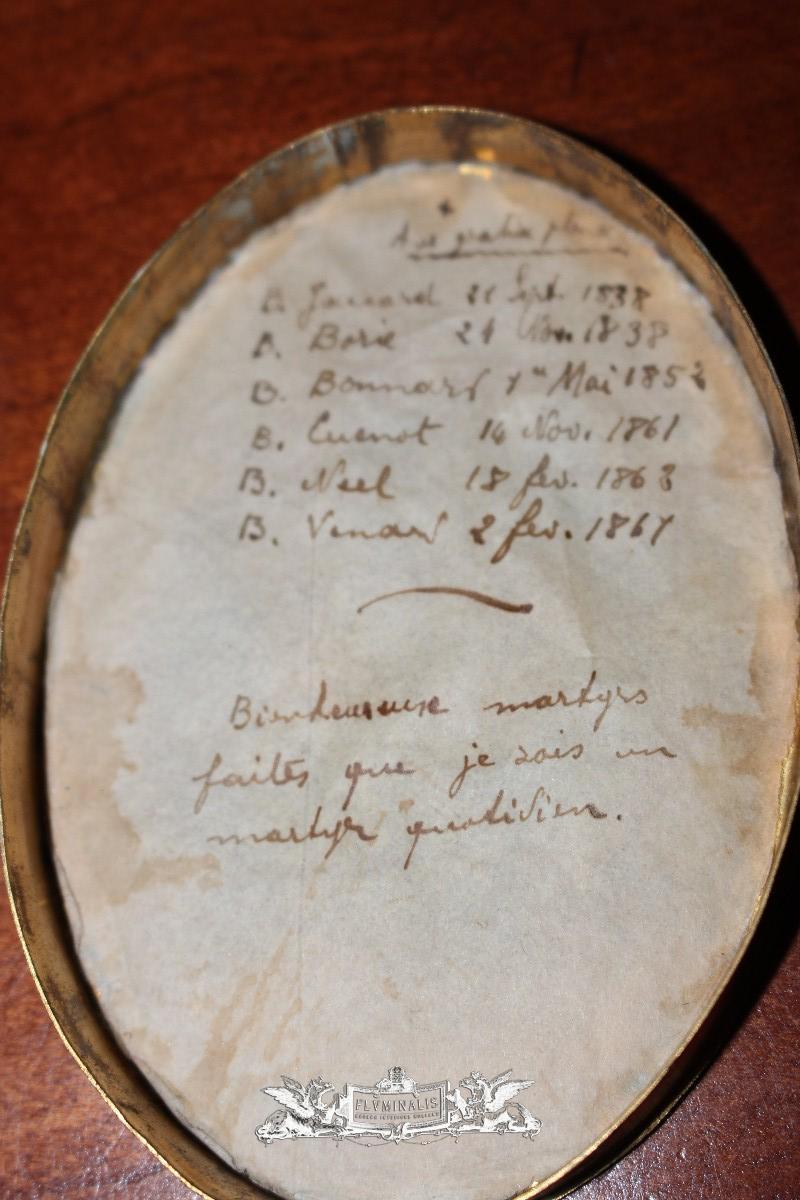 +
Ave gratia plena
B. Jaccard 21 Sept. 1838
B. Borie 24 Nov. 1838
B. Bonnard 1er Mai 1852
B. Cuenot 14 Nov. 1861
B. Néel 18 fev. 1862
B. Venard 2 fev. 1861
Bienheureuse martyrs
faites que je sois un
martyr quotidien.
FLVMINALIS